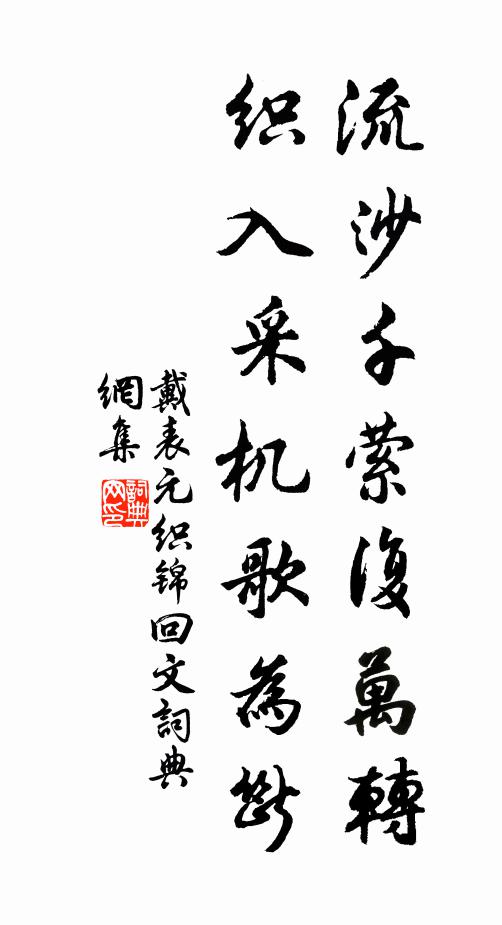 流沙千萦復萬轉
织入采机歌為斷
戴表元织锦回文詞典
網集
詞典网印